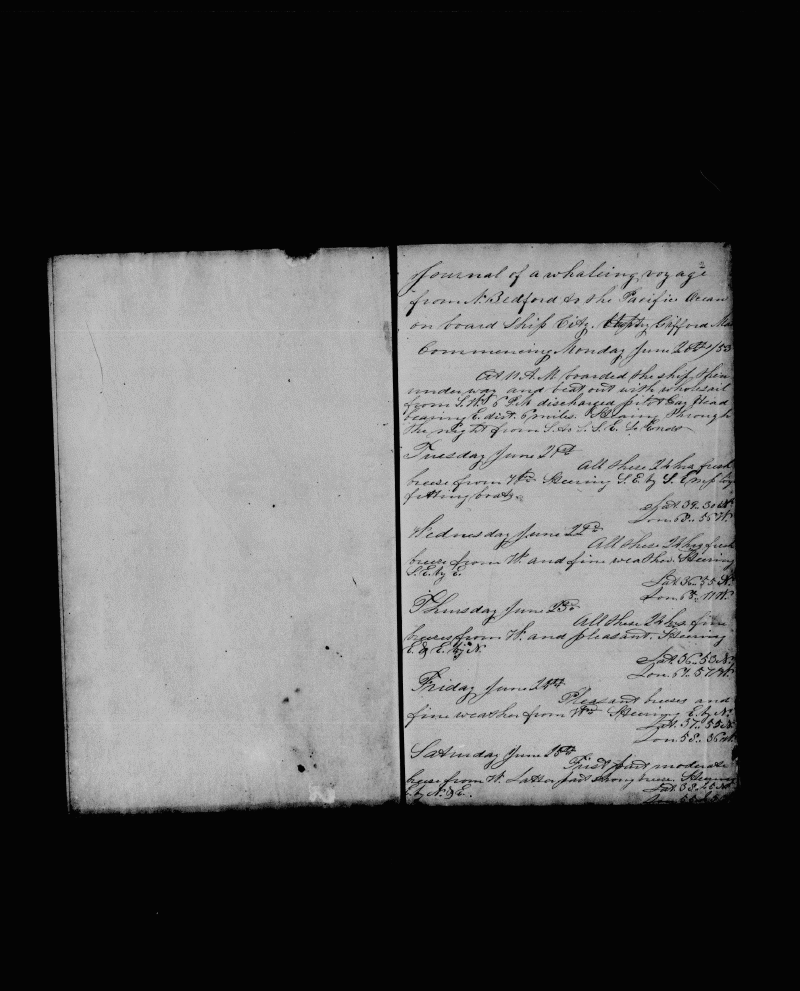 Journal of a whaleing voyage
from N. Bedford to the Pacific Ocean
on board Ship City, Gifford
Commencing Monday June 20th /53
At 11 A.M. boarded the ship then
under way and beat out with wholesail
from S.W. 6 P.M discharged pilot Gay Head
bearing E. dist. 6 miles. through
the night from S. to S.S.E. So Ends
Tuesday June 21st
All these 24 hrs fresh
breese from Wd Steering S.E. by S.
fitting boats.
Lat. 39..30 N.
Lon 68..55 W.
Wednesday June 22d
All these 24 hrs fresh
breese from W. and fine weather. Steering
S.E. by E.
Lat. 36..55 N.
Lon 68..11 W.
Thursday June 23d
All these 24 hrs. fine
breeses from W. and pleasant. Steering
E. & E. by N.
Lat. 36..53 N.
Lon. 61..57 W.
Friday June 24th
Pleasant breeses and
fine weather from Wd Steering E. by N.
Lat. 37..55 N.
Lon 58..36 W.
Saturday June 25th
First part moderate
breese from W. Latter part strong breese. Steering
E. by N. & E.
Lat. 38..25 N.
Lon 55